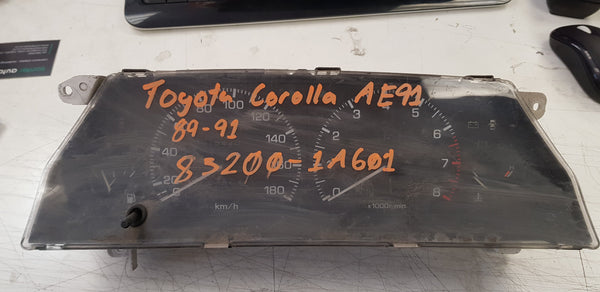 Toyota Corolla AE91
89-91
83200-1A601
0
20
40
80
100
120
160
180
km/h
0
1
2
3
4
5
6
7
8
x1000r/min